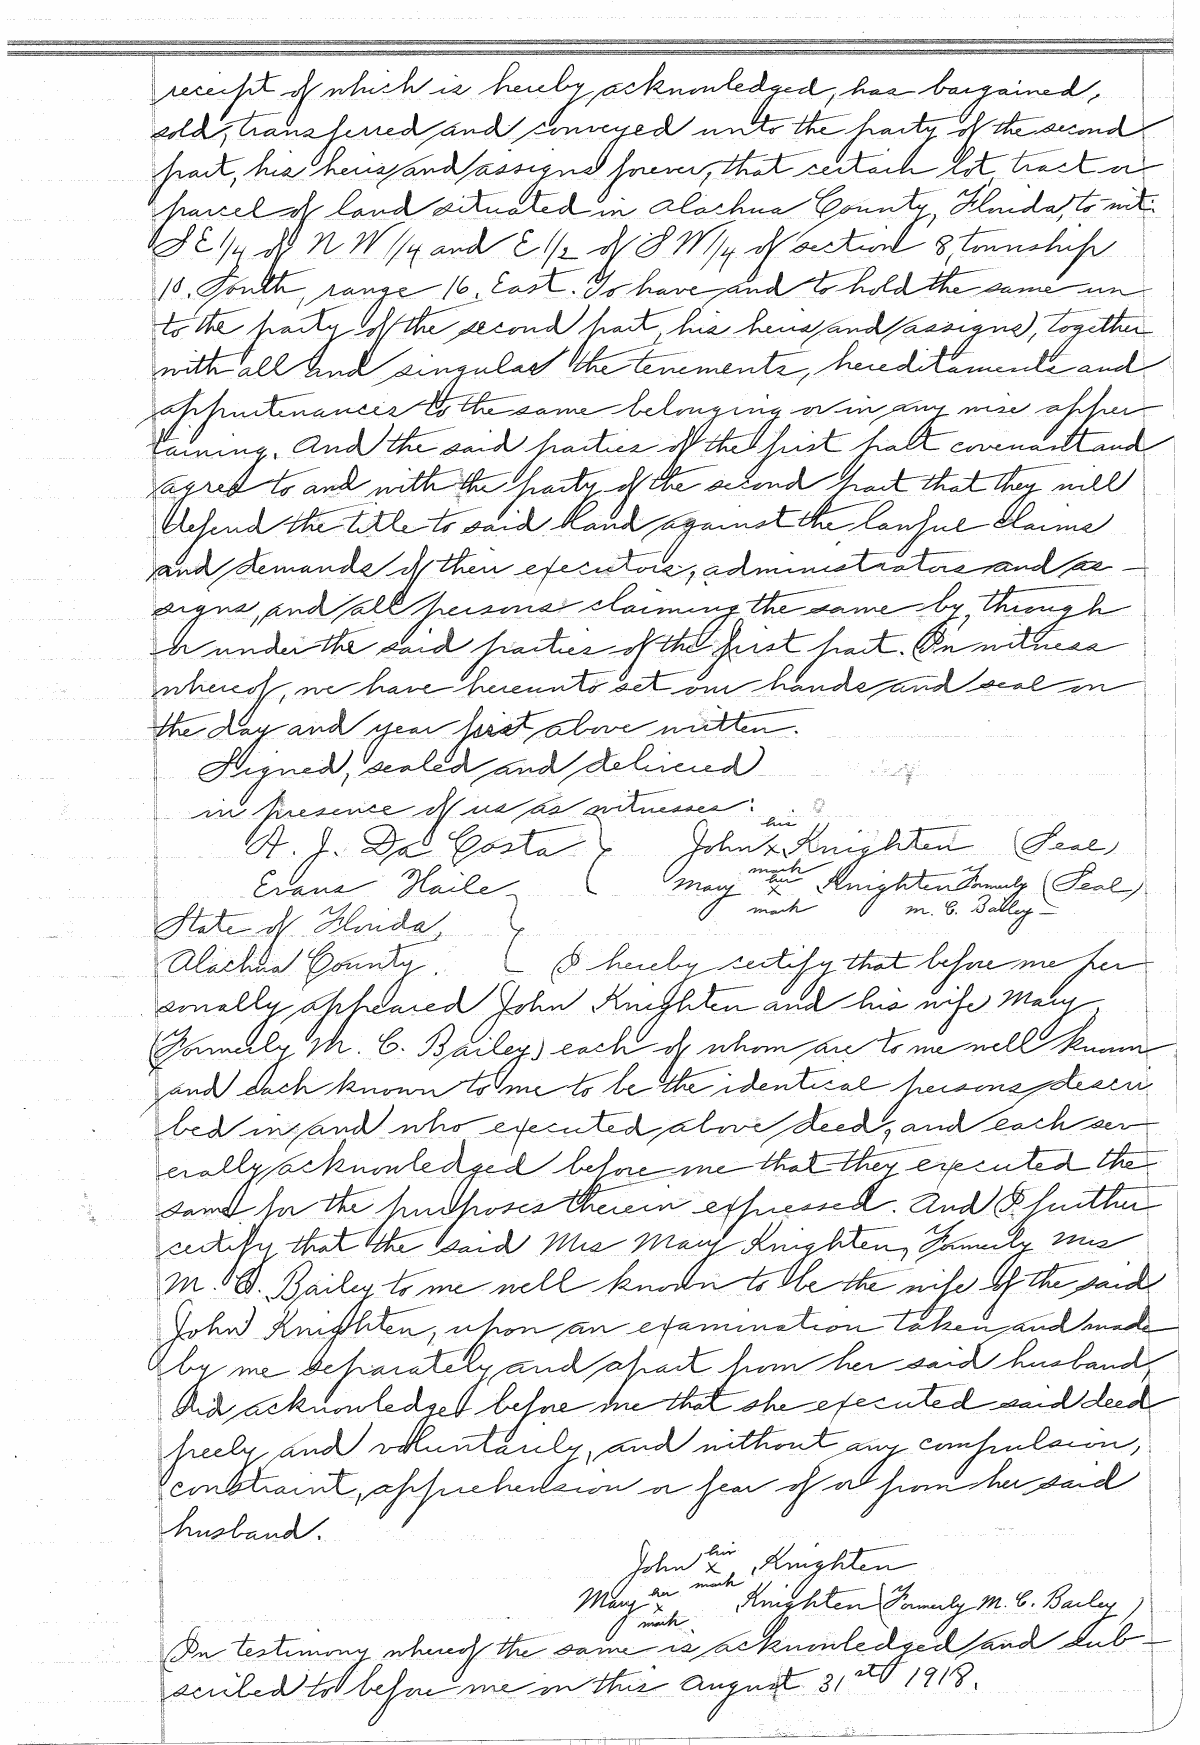 receipt of which is hereby acknowledged, has bargained,
sold, transferred and conveyed unto the party of the second
part, his heirs and assigns forever, that certain lot, tract or
parcel of land situated in Alachua County, Florida, to wit:
SE 1/4 of NW 1/4 and E 1/2 of SW 1/4 of section 8, township
10. South, range 16. East. To have and to hold the same un
to the party of the second part, his heirs and assigns, together
with all and singular the tenements, hereditaments and
appurtenances to the same belonging or in any wise apper
taining. And the said parties of the first part covenant and
agree to and with the party of the second part that they will
defend the title to said land against the lawful claims
and demands of their executors, administrators and as-
signs, and all persons claiming the same by, through
or under the said parties of the first part. In witness
whereof, we have hereunto set our hands and seal on
the day and year first above written.
Signed, sealed and delivered
in presence of us as witnesses:
A. J. Da Costa John his x mark Knighten (Seal)
Evans Haile Mary her x mark Knighten Formerly M. C. Bailey (Seal)
State of Florida,
Alachua County. I hereby certify that before me per
sonally appeared John Knighten and his wife Mary
(Formerly M. C. Bailey) each of whom are to me well known
and each known to me to be the identical persons descri
bed in and who executed above deed, and each sev
erally acknowledged before me that they executed the
same for the purposes therein expressed. And I further
certify that the said Mrs Mary Knighten, Formerly Mrs
M. C. Bailey to me well known to be the wife of the said
John Knighten, upon an examination taken and made
by me separately and apart from her said husband,
did acknowledged before me that she executed said deed
freely and voluntarily, and without any compulsion,
constraint, apprehension or fear of or from her said
husband.
John his x mark Knighten
Mary her x mark Knighten (Formerly M. C. Bailey)
In testimony whereof the same is acknowledged and sub-
scribed to before me on this August 31st 1918.